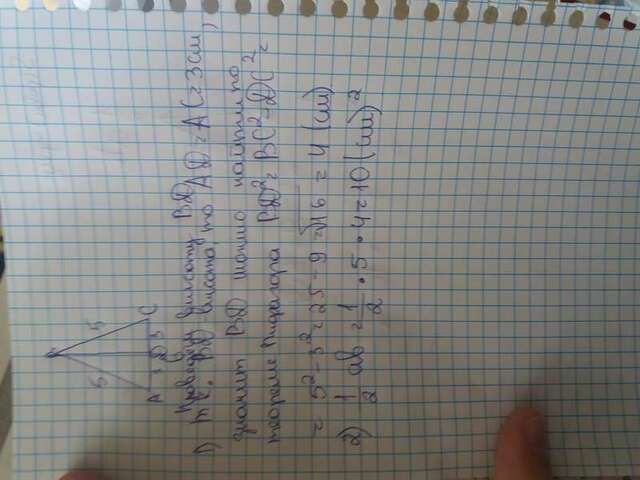 B
5 5
A 3 D 3 C
Проведем высоту BD
1) т.к. BD высота, то AD = AC = 3 см,
значит BD можно найти по
теореме Пифагора BD² = BC² - DC² =
= 5² - 3² = 25 - 9 = √16 = 4 (см)
2) 1/2 ab = 1/2 • 5 • 4 = 10 (см)²